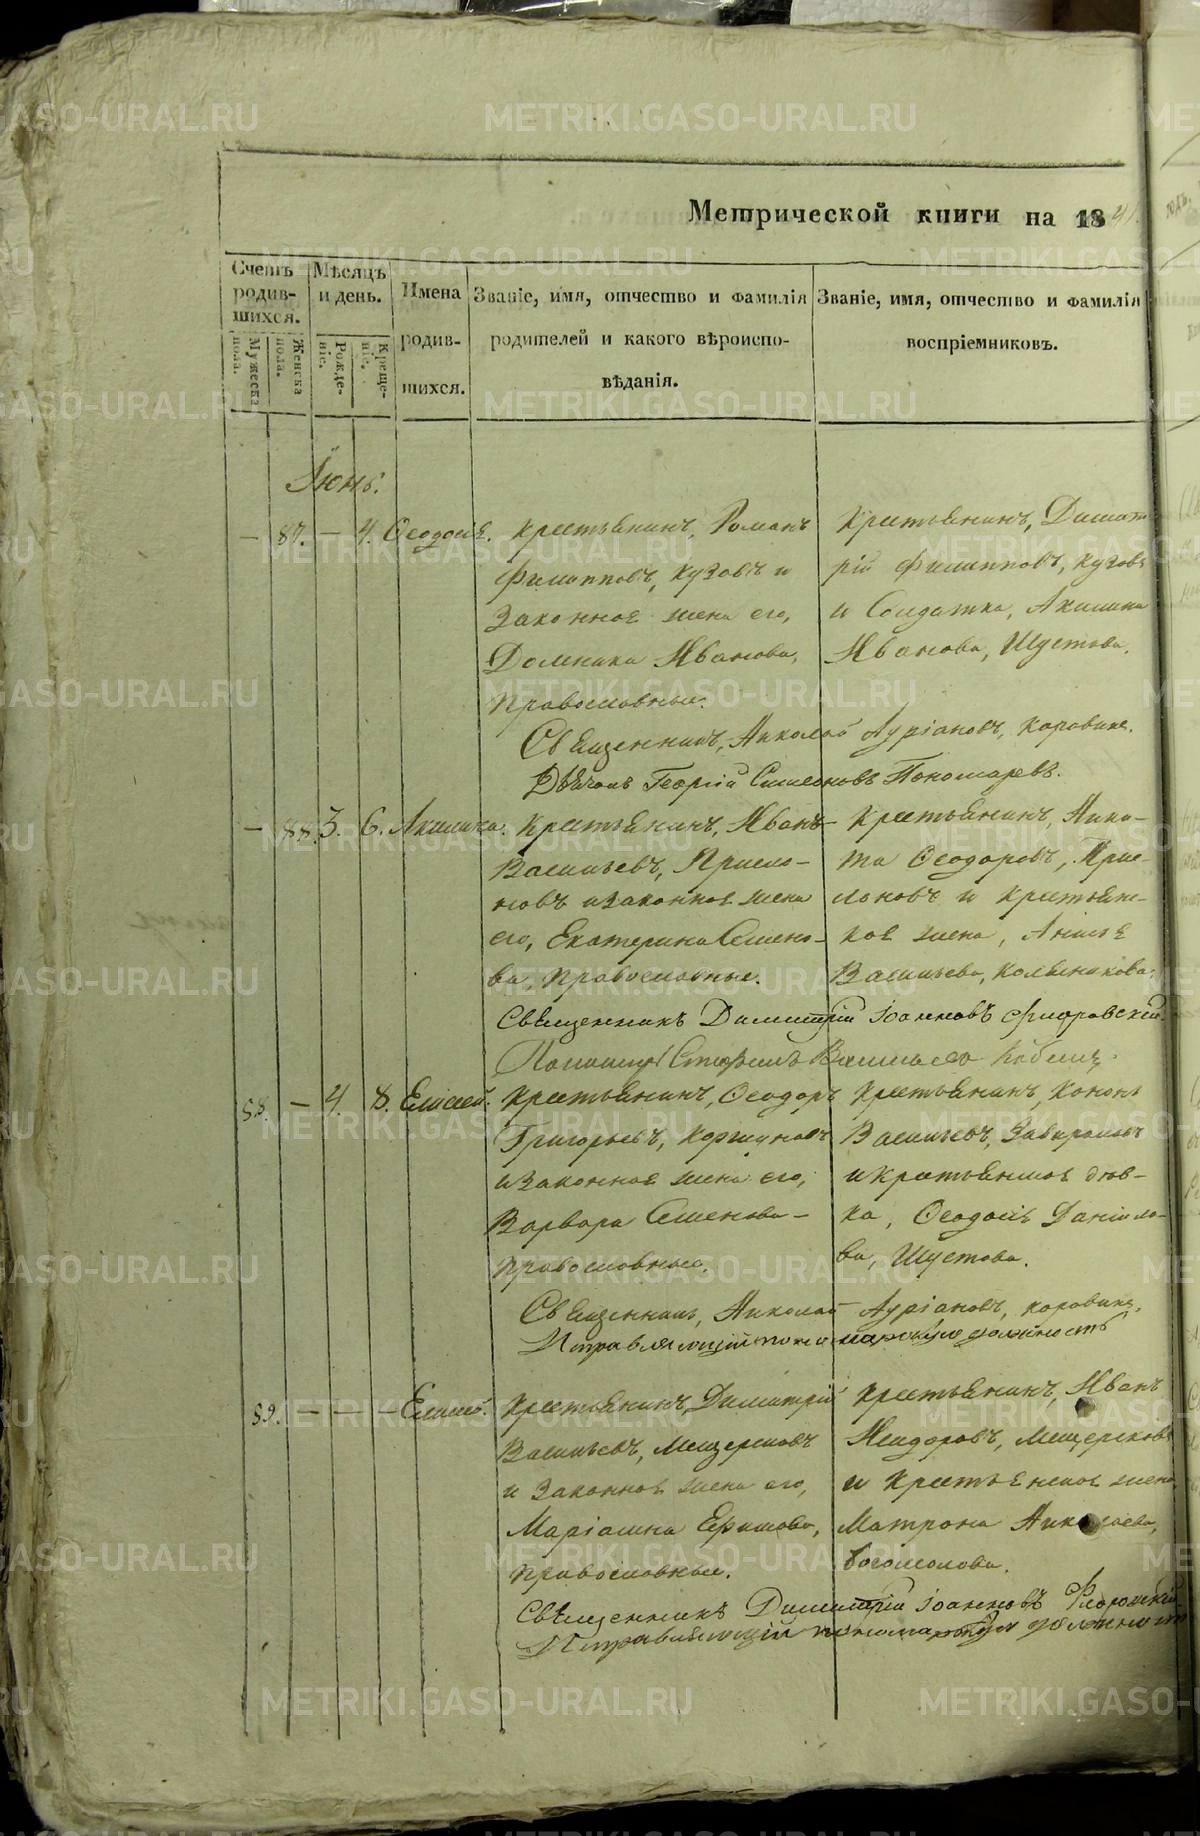 Метрической книги на 1841.
Счетъ родив-шихся.
Мѣсяцъ и день.
Имена родив-шихся.
Званіе, имя, отчество и фамилія родителей и какого вѣроиспо-вѣданія.
Званіе, имя, отчество и фамилія воспріемниковъ.
Мужеска пола.
Женска пола.
Рожде-ніе.
Креще-ніе.
Іюнь.
— 87. — 4. Ѳеодосія. Крестьянинъ, Романъ
Филипповъ, Кузовъ и
законная жена его,
Домника Иванова,
православные.
Крестьянинъ, Димит-
рій Филипповъ, Кузовъ
и Солдатка, Акилина
Иванова, Шустова.
Священникъ, Николай Ауріановъ, Коровинъ.
Дьячокъ Георгій Симеоновъ Пономаревъ.
— 88. 3. 6. Акилина. Крестьянинъ, Иванъ
Васильевъ, Присло-
новъ и законная жена
его, Екатерина Семено-
ва, православные.
Крестьянинъ, Ники-
та Ѳеодоровъ, Прис-
лоновъ и крестьянс-
кая жена, Анисія
Васильева, Колесникова.
Священникъ Димитрій Іоанновъ Флоровскій.
Пономарь Стефанъ Васильевъ
88. — 4. 8. Елисей. Крестьянинъ, Ѳеодоръ
Григорьевъ, Коршуновъ
и законная жена его,
Варвара Семенова —
православные.
Крестьянинъ, Кононъ
Васильевъ,
и крестьянская дѣв-
ка, Ѳеодосія Даніило-
ва, Шустова.
Священникъ, Николай Ауріановъ, Коровинъ.
Исправляющій пономарскую должность
89. — — — Елисей. Крестьянинъ, Димитрій
Васильевъ, Мещеряковъ
и законная жена его,
Маріамна Ефимова,
православные.
Крестьянинъ, Иванъ
Исидоровъ, Мещеряковъ
и крестьянская жена
Матрона Николаева,
Богомолова.
Священникъ Димитрій Іоанновъ Флоровскій.
Исправляющій пономарскую должность
METRIKI.GASO-URAL.RU